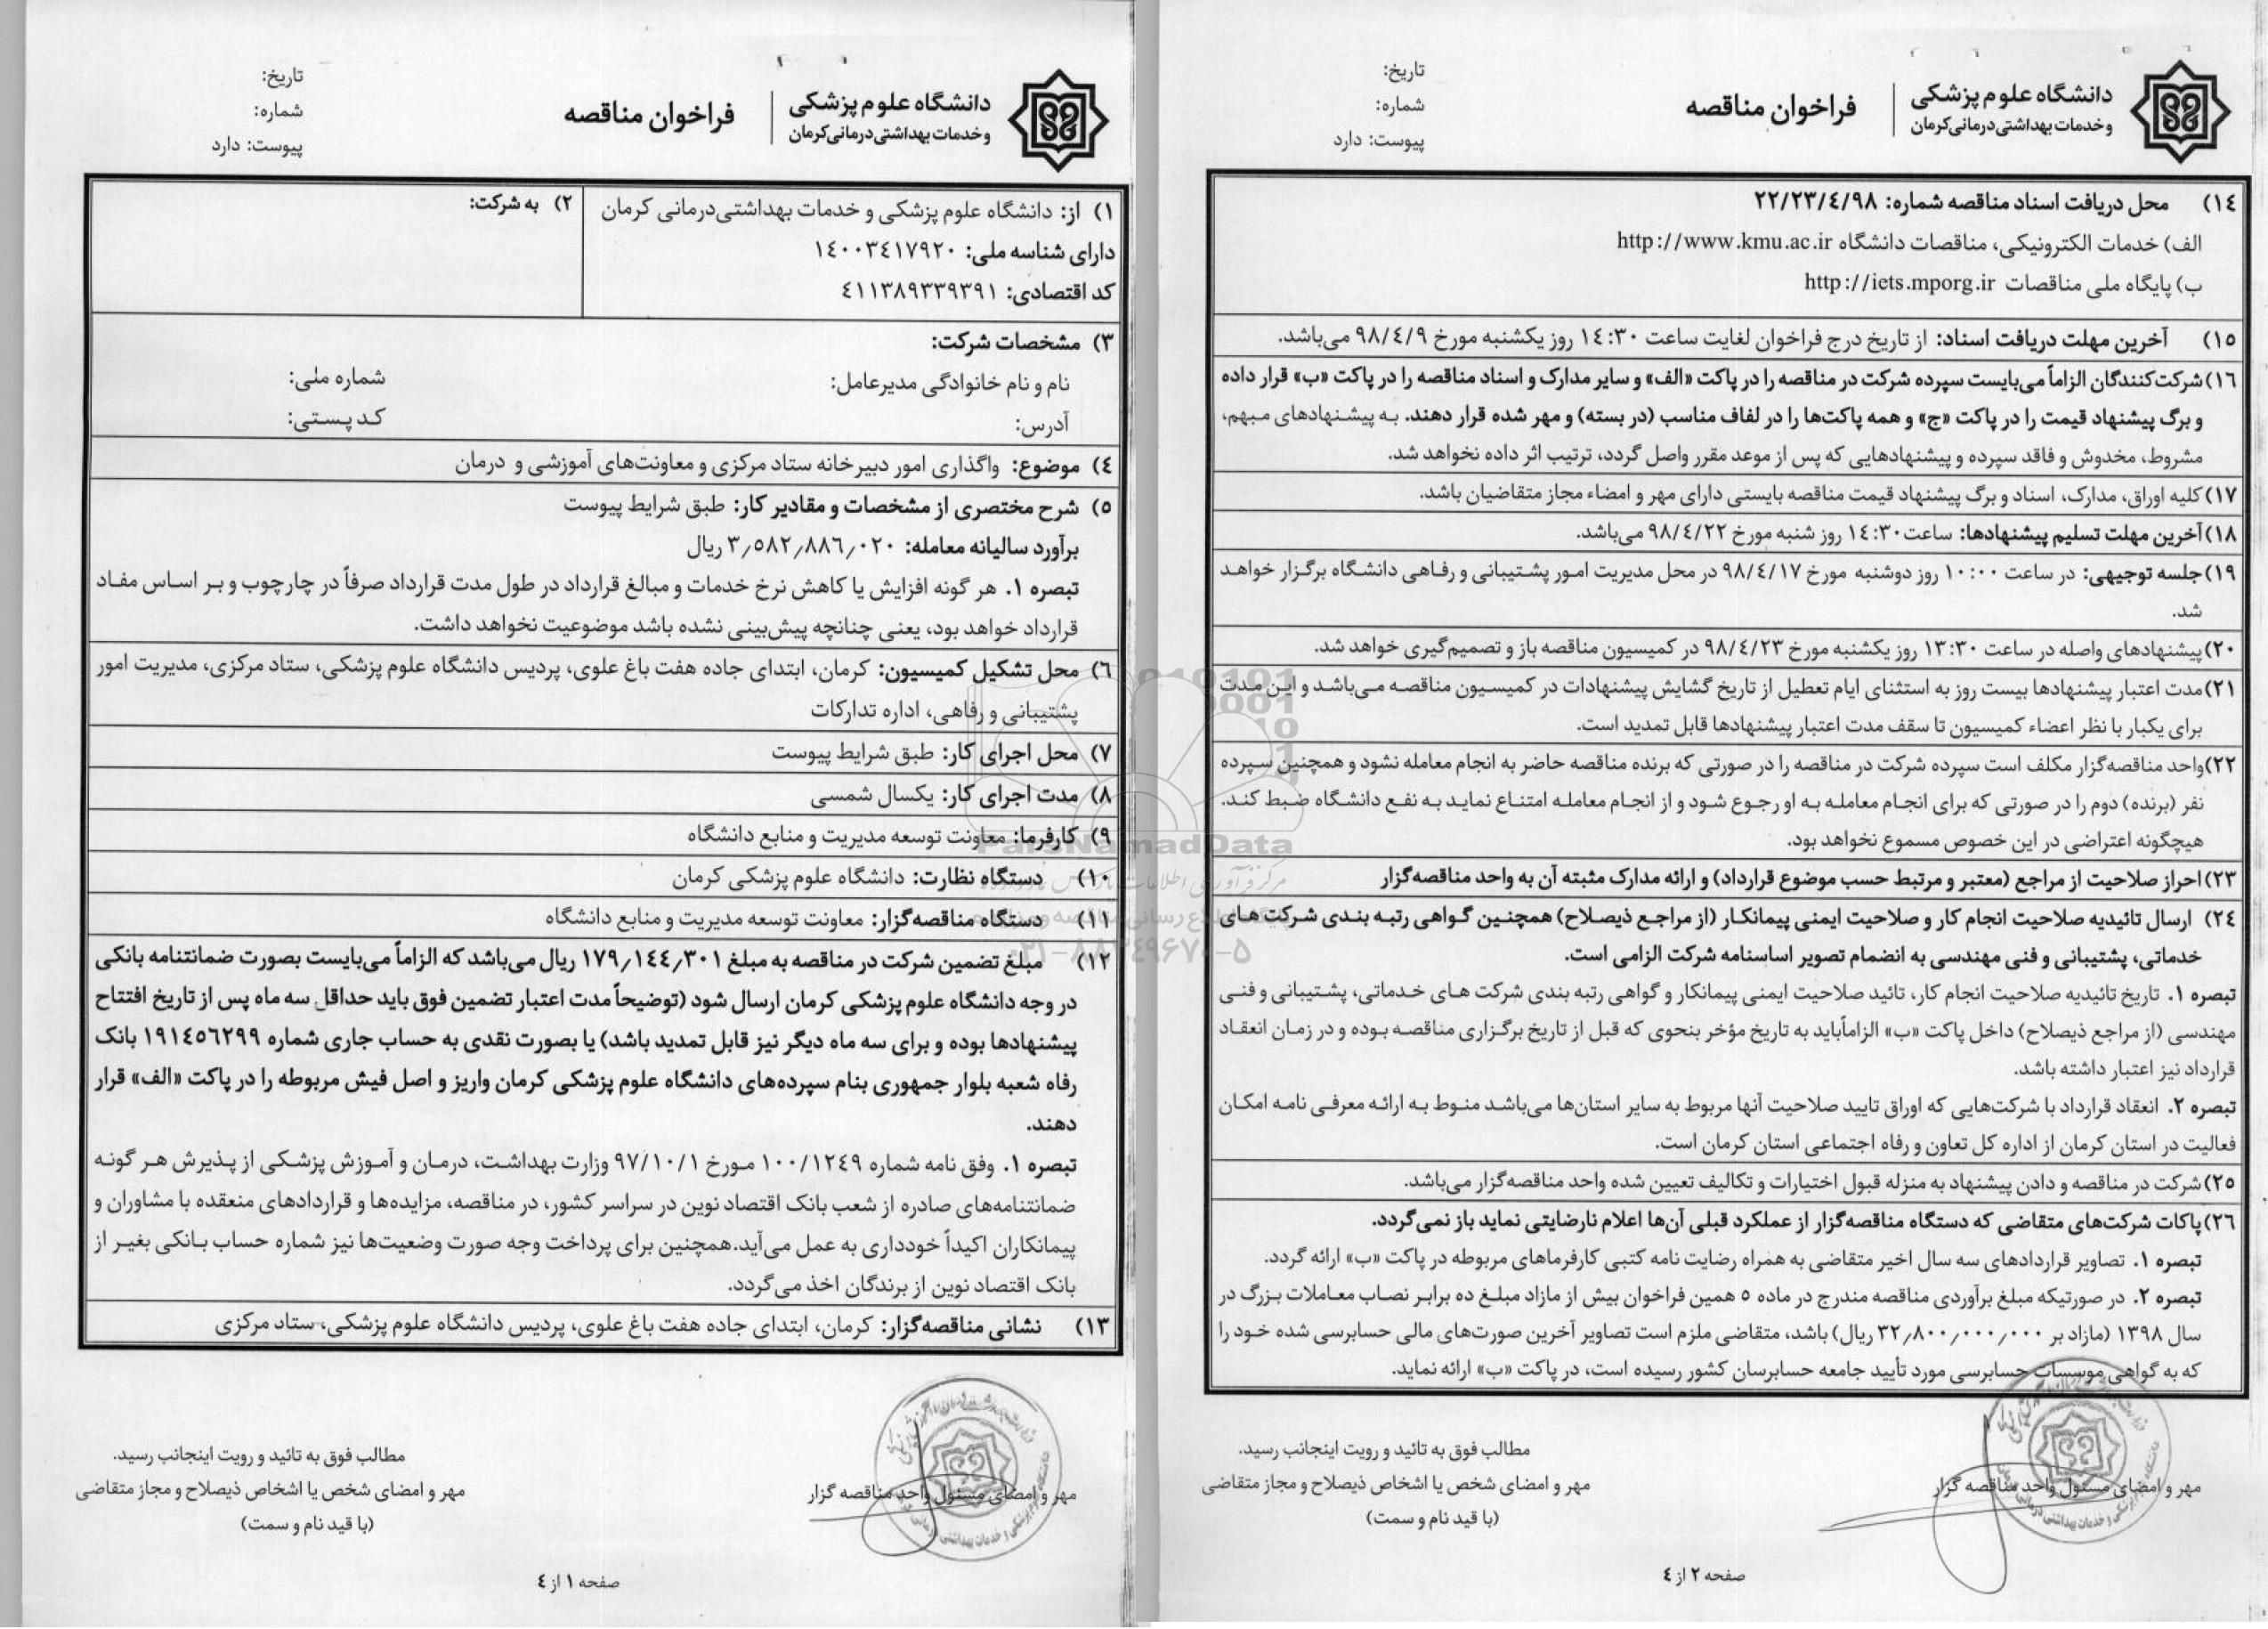 دانشگاه علوم پزشکی
و خدمات بهداشتی درمانی کرمان
فراخوان مناقصه
تاریخ:
شماره:
پیوست: دارد
۱) از: دانشگاه علوم پزشکی و خدمات بهداشتی‌درمانی کرمان
دارای شناسه ملی: ۱٤۰۰۳٤۱۷۹۲۰
کد اقتصادی: ٤۱۱۳۸۹۳۳۹۳۹۱
۲) به شرکت:
۳) مشخصات شرکت:
نام و نام خانوادگی مدیرعامل:
شماره ملی:
آدرس:
کد پستی:
٤) موضوع: واگذاری امور دبیرخانه ستاد مرکزی و معاونت‌های آموزشی و درمان
٥) شرح مختصری از مشخصات و مقادیر کار: طبق شرایط پیوست
برآورد سالیانه معامله: ۳٫٥۸۲٫۸۸٦٫۰۲۰ ریال
تبصره ۱. هر گونه افزایش یا کاهش نرخ خدمات و مبالغ قرارداد در طول مدت قرارداد صرفاً در چارچوب و بر اساس مفاد
قرارداد خواهد بود، یعنی چنانچه پیش‌بینی نشده باشد موضوعیت نخواهد داشت.
٦) محل تشکیل کمیسیون: کرمان، ابتدای جاده هفت باغ علوی، پردیس دانشگاه علوم پزشکی، ستاد مرکزی، مدیریت امور
پشتیبانی و رفاهی، اداره تدارکات
۷) محل اجرای کار: طبق شرایط پیوست
۸) مدت اجرای کار: یکسال شمسی
۹) کارفرما: معاونت توسعه مدیریت و منابع دانشگاه
۱۰) دستگاه نظارت: دانشگاه علوم پزشکی کرمان
۱۱) دستگاه مناقصه‌گزار: معاونت توسعه مدیریت و منابع دانشگاه
۱۲) مبلغ تضمین شرکت در مناقصه به مبلغ ۱۷۹٫۱٤٤٫۳۰۱ ریال می‌باشد که الزاماً می‌بایست بصورت ضمانتنامه بانکی
در وجه دانشگاه علوم پزشکی کرمان ارسال شود (توضیحاً مدت اعتبار تضمین فوق باید حداقل سه ماه پس از تاریخ افتتاح
پیشنهادها بوده و برای سه ماه دیگر نیز قابل تمدید باشد) یا بصورت نقدی به حساب جاری شماره ۱۹۱٤٥٦۲۹۹ بانک
رفاه شعبه بلوار جمهوری بنام سپرده‌های دانشگاه علوم پزشکی کرمان واریز و اصل فیش مربوطه را در پاکت «الف» قرار
دهند.
تبصره ۱. وفق نامه شماره ۱۰۰/۱۲٤۹ مورخ ۹۷/۱۰/۱ وزارت بهداشت، درمان و آموزش پزشکی از پذیرش هر گونه
ضمانتنامه‌های صادره از شعب بانک اقتصاد نوین در سراسر کشور، در مناقصه، مزایده‌ها و قراردادهای منعقده با مشاوران و
پیمانکاران اکیداً خودداری به عمل می‌آید.همچنین برای پرداخت وجه صورت وضعیت‌ها نیز شماره حساب بانکی بغیر از
بانک اقتصاد نوین از برندگان اخذ می‌گردد.
۱۳) نشانی مناقصه‌گزار: کرمان، ابتدای جاده هفت باغ علوی، پردیس دانشگاه علوم پزشکی، ستاد مرکزی
مهر و امضای مسئول واحد مناقصه گزار
مطالب فوق به تائید و رویت اینجانب رسید.
مهر و امضای شخص یا اشخاص ذیصلاح و مجاز متقاضی
(با قید نام و سمت)
صفحه ۱ از ٤
دانشگاه علوم پزشکی
و خدمات بهداشتی درمانی کرمان
فراخوان مناقصه
تاریخ:
شماره:
پیوست: دارد
۱٤) محل دریافت اسناد مناقصه شماره: ۲۲/۲۳/٤/۹۸
الف) خدمات الکترونیکی، مناقصات دانشگاه http://www.kmu.ac.ir
ب) پایگاه ملی مناقصات http://iets.mporg.ir
۱٥) آخرین مهلت دریافت اسناد: از تاریخ درج فراخوان لغایت ساعت ۱٤:۳۰ روز یکشنبه مورخ ۹۸/٤/۹ می‌باشد.
۱٦) شرکت‌کنندگان الزاماً می‌بایست سپرده شرکت در مناقصه را در پاکت «الف» و سایر مدارک و اسناد مناقصه را در پاکت «ب» قرار داده
و برگ پیشنهاد قیمت را در پاکت «ج» و همه پاکت‌ها را در لفاف مناسب (در بسته) و مهر شده قرار دهند. به پیشنهادهای مبهم،
مشروط، مخدوش و فاقد سپرده و پیشنهادهایی که پس از موعد مقرر واصل گردد، ترتیب اثر داده نخواهد شد.
۱۷) کلیه اوراق، مدارک، اسناد و برگ پیشنهاد قیمت مناقصه بایستی دارای مهر و امضاء مجاز متقاضیان باشد.
۱۸) آخرین مهلت تسلیم پیشنهادها: ساعت ۱٤:۳۰ روز شنبه مورخ ۹۸/٤/۲۲ می‌باشد.
۱۹) جلسه توجیهی: در ساعت ۱۰:۰۰ روز دوشنبه مورخ ۹۸/٤/۱۷ در محل مدیریت امور پشتیبانی و رفاهی دانشگاه برگزار خواهد
شد.
۲۰) پیشنهادهای واصله در ساعت ۱۳:۳۰ روز یکشنبه مورخ ۹۸/٤/۲۳ در کمیسیون مناقصه باز و تصمیم‌گیری خواهد شد.
۲۱) مدت اعتبار پیشنهادها بیست روز به استثنای ایام تعطیل از تاریخ گشایش پیشنهادات در کمیسیون مناقصه می‌باشد و این مدت
برای یکبار با نظر اعضاء کمیسیون تا سقف مدت اعتبار پیشنهادها قابل تمدید است.
۲۲) واحد مناقصه‌گزار مکلف است سپرده شرکت در مناقصه را در صورتی که برنده مناقصه حاضر به انجام معامله نشود و همچنین سپرده
نفر (برنده) دوم را در صورتی که برای انجام معامله به او رجوع شود و از انجام معامله امتناع نماید به نفع دانشگاه ضبط کند.
هیچگونه اعتراضی در این خصوص مسموع نخواهد بود.
۲۳) احراز صلاحیت از مراجع (معتبر و مرتبط حسب موضوع قرارداد) و ارائه مدارک مثبته آن به واحد مناقصه‌گزار
۲٤) ارسال تائیدیه صلاحیت انجام کار و صلاحیت ایمنی پیمانکار (از مراجع ذیصلاح) همچنین گواهی رتبه بندی شرکت های
خدماتی، پشتیبانی و فنی مهندسی به انضمام تصویر اساسنامه شرکت الزامی است.
تبصره ۱. تاریخ تائیدیه صلاحیت انجام کار، تائید صلاحیت ایمنی پیمانکار و گواهی رتبه بندی شرکت های خدماتی، پشتیبانی و فنی
مهندسی (از مراجع ذیصلاح) داخل پاکت «ب» الزاماًباید به تاریخ مؤخر بنحوی که قبل از تاریخ برگزاری مناقصه بوده و در زمان انعقاد
قرارداد نیز اعتبار داشته باشد.
تبصره ۲. انعقاد قرارداد با شرکت‌هایی که اوراق تایید صلاحیت آنها مربوط به سایر استان‌ها می‌باشد منوط به ارائه معرفی نامه امکان
فعالیت در استان کرمان از اداره کل تعاون و رفاه اجتماعی استان کرمان است.
۲٥) شرکت در مناقصه و دادن پیشنهاد به منزله قبول اختیارات و تکالیف تعیین شده واحد مناقصه‌گزار می‌باشد.
۲٦) پاکات شرکت‌های متقاضی که دستگاه مناقصه‌گزار از عملکرد قبلی آن‌ها اعلام نارضایتی نماید باز نمی‌گردد.
تبصره ۱. تصاویر قراردادهای سه سال اخیر متقاضی به همراه رضایت نامه کتبی کارفرماهای مربوطه در پاکت «ب» ارائه گردد.
تبصره ۲. در صورتیکه مبلغ برآوردی مناقصه مندرج در ماده ٥ همین فراخوان بیش از مازاد مبلغ ده برابر نصاب معاملات بزرگ در
سال ۱۳۹۸ (مازاد بر ۳۲٫۸۰۰٫۰۰۰٫۰۰۰ ریال) باشد، متقاضی ملزم است تصاویر آخرین صورت‌های مالی حسابرسی شده خود را
که به گواهی موسسات حسابرسی مورد تأیید جامعه حسابرسان کشور رسیده است، در پاکت «ب» ارائه نماید.
مهر و امضای مسئول واحد مناقصه گزار
مطالب فوق به تائید و رویت اینجانب رسید.
مهر و امضای شخص یا اشخاص ذیصلاح و مجاز متقاضی
(با قید نام و سمت)
صفحه ۲ از ٤
ParsNamadData
۰۲۱-۸۸۳۴۹۶۷۰-۵